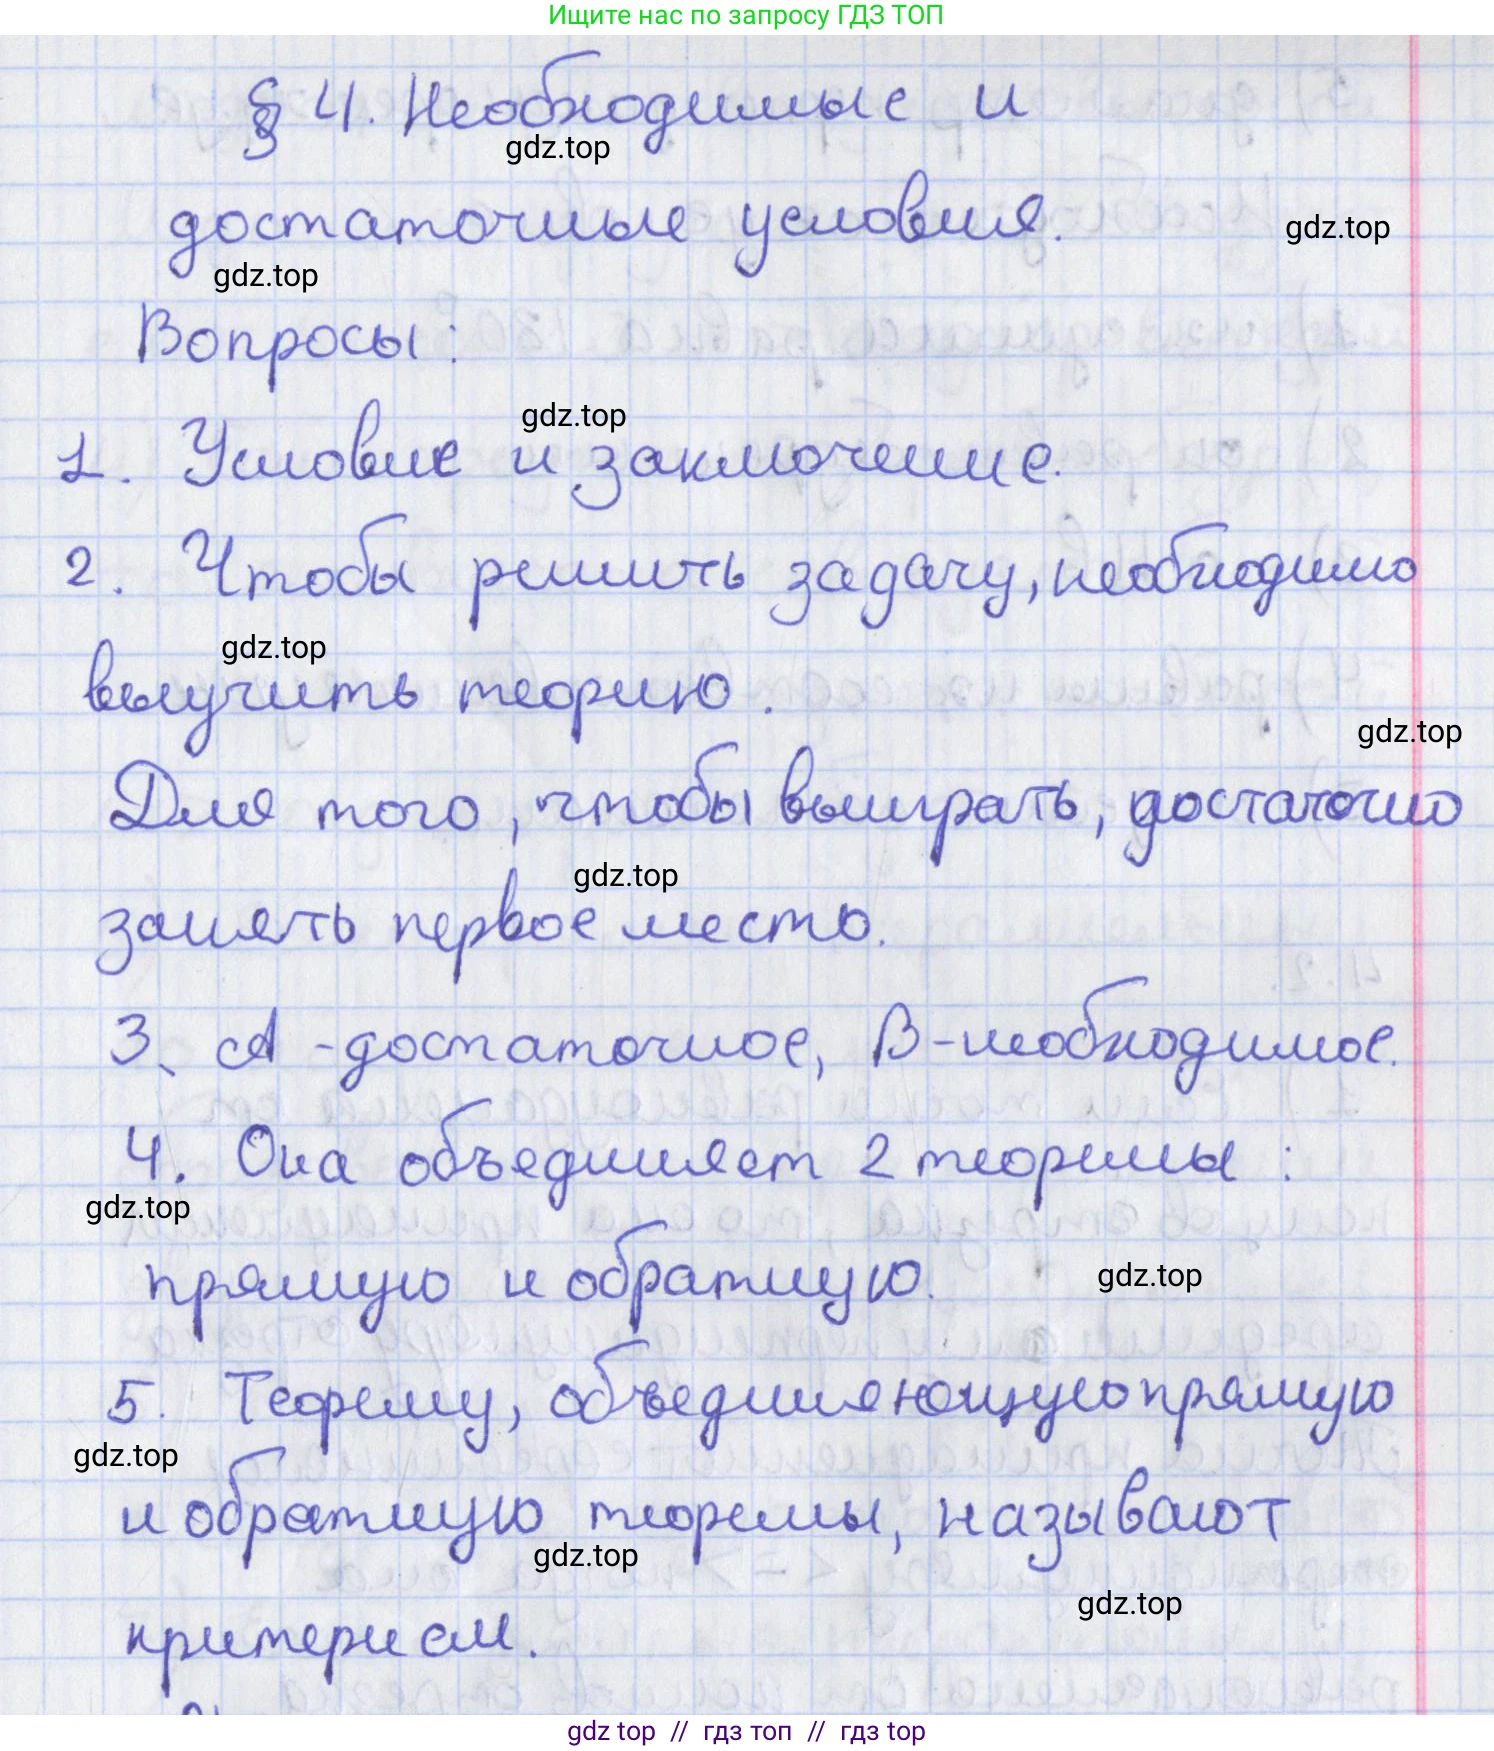 Ищите нас по запросу ГДЗ ТОП
§ 4. Необходимые и
gdz.top
достаточные условия.
gdz.top
gdz.top
Вопросы:
gdz.top
1. Условие и заключение.
2. Чтобы решить задачу, необходимо
gdz.top
выучить теорию.
gdz.top
Для того, чтобы выиграть, достаточно
gdz.top
занять первое место.
3. А - достаточное, В - необходимое.
4. Она объединяет 2 теоремы:
gdz.top
прямую и обратную.
gdz.top
5. Теорему, объединяющую прямую
gdz.top
и обратную теоремы, называют
gdz.top
gdz.top
критерием.
gdz top // гдз топ // гдз top